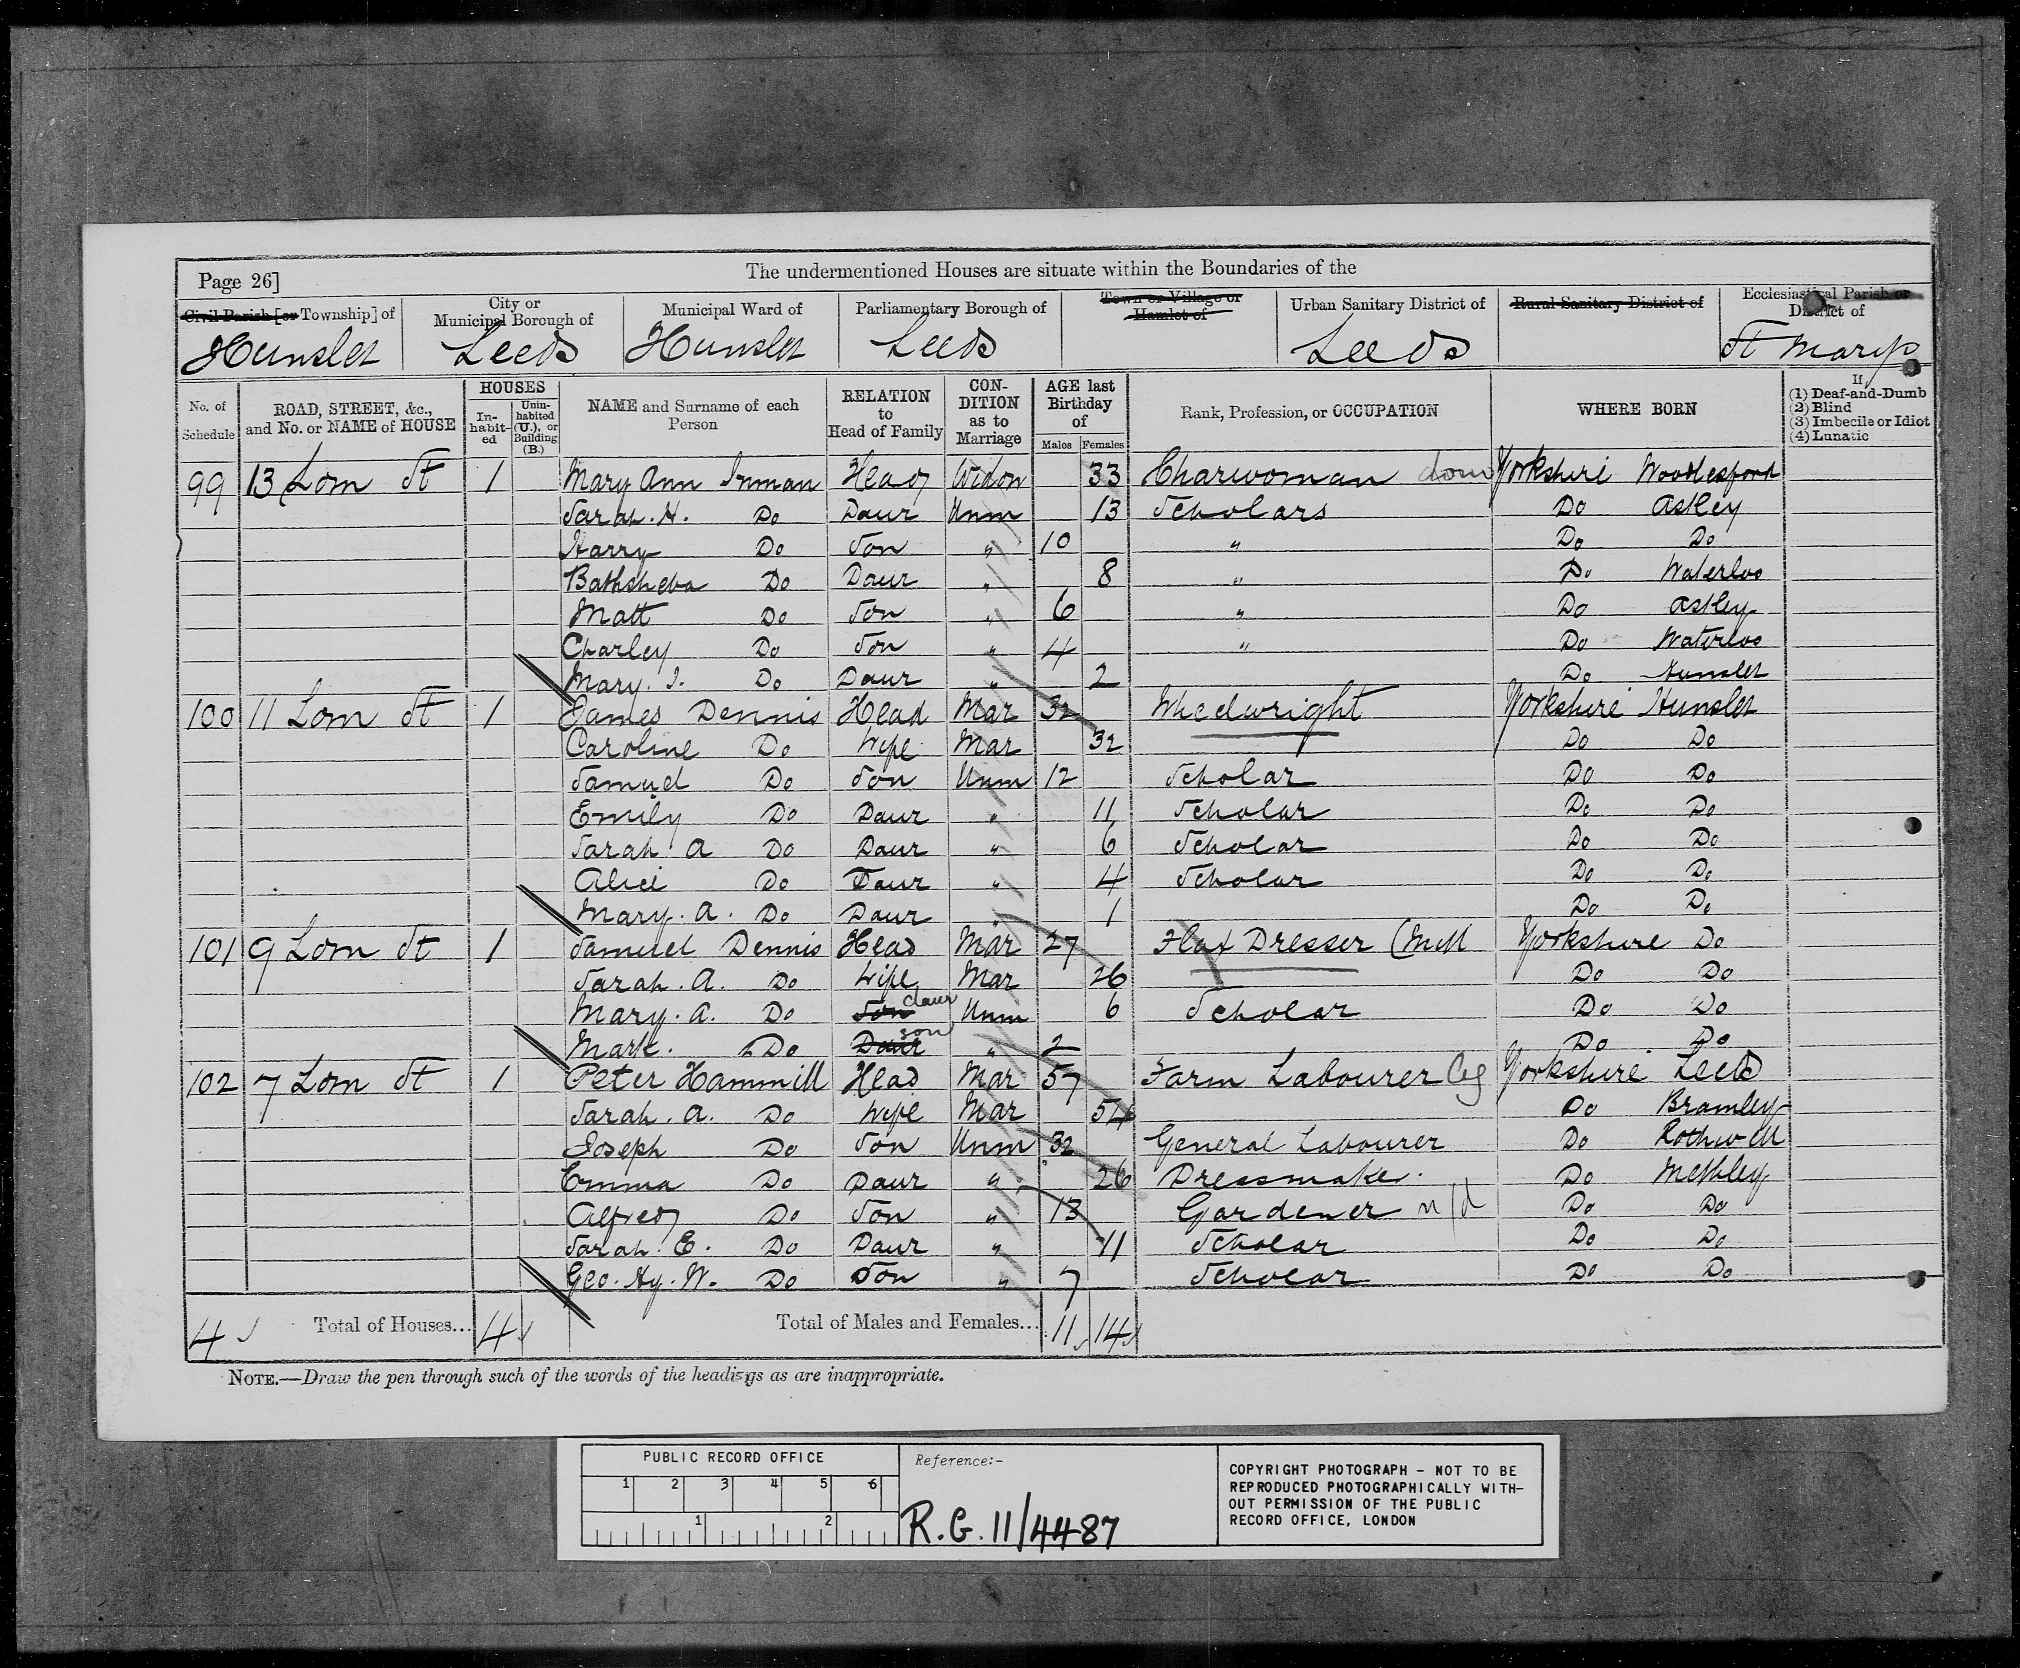 Page 26]
The undermentioned Houses are situate within the Boundaries of the
Civil Parish [or Township] of
City or Municipal Borough of
Municipal Ward of
Parliamentary Borough of
Town or Village or Hamlet of
Urban Sanitary District of
Rural Sanitary District of
Ecclesiastical Parish or District of
Hunslet Leeds Hunslet Leeds Leeds St Marys
No. of Schedule
ROAD, STREET, &c., and No. or NAME of HOUSE
HOUSES
In-habit-ed
Unin-habited (U.), or Building (B.)
NAME and Surname of each Person
RELATION to Head of Family
CON-DITION as to Marriage
AGE last Birthday of
Males Females
Rank, Profession, or OCCUPATION
WHERE BORN
If
(1) Deaf-and-Dumb
(2) Blind
(3) Imbecile or Idiot
(4) Lunatic
99 13 Lom St 1 Mary Ann Inman Head Widow 33 Charwoman dom Yorkshire Woodlesford
Sarah. H. Do Daur Unm 13 Scholars Do Astley
Harry Do Son " 10 " Do Do
Bathsheba Do Daur " 8 " Do Waterloo
Matt Do Son " 6 " Do Astley
Charley Do Son " 4 " Do Waterloo
Mary. I. Do Daur " 2 Do Hunslet
100 11 Lom St 1 James Dennis Head Mar 32 Wheelwright Yorkshire Hunslet
Caroline Do Wife Mar 32 Do Do
Samuel Do Son Unm 12 Scholar Do Do
Emily Do Daur " 11 Scholar Do Do
Sarah A Do Daur " 6 Scholar Do Do
Alice Do Daur " 4 Scholar Do Do
Mary. A. Do Daur " 1 Do Do
101 9 Lom St 1 Samuel Dennis Head Mar 27 Flax Dresser (Mill Yorkshire Do
Sarah. A. Do Wife Mar 26 Do Do
Mary. A. Do Son daur Unm 6 Scholar Do Do
Mark. Do Daur son " 2 Do Do
102 7 Lom St 1 Peter Hammill Head Mar 57 Farm Labourer Yorkshire Leeds
Sarah. A. Do Wife Mar 54 Do Bramley
Joseph Do Son Unm 32 General Labourer Do Rothwell
Emma Do Daur " 26 Dressmaker Do Methley
Alfred Do Son " 13 Gardener n/d Do Do
Sarah. E. Do Daur " 11 Scholar Do Do
Geo. Hy. W. Do Son " 7 Scholar Do Do
4 Total of Houses... 4 Total of Males and Females... 11 14
NOTE.—Draw the pen through such of the words of the headings as are inappropriate.
PUBLIC RECORD OFFICE
1 2 3 4 5 6
1 2
Reference:-
R.G. 11/4487
COPYRIGHT PHOTOGRAPH - NOT TO BE
REPRODUCED PHOTOGRAPHICALLY WITH-
OUT PERMISSION OF THE PUBLIC
RECORD OFFICE, LONDON